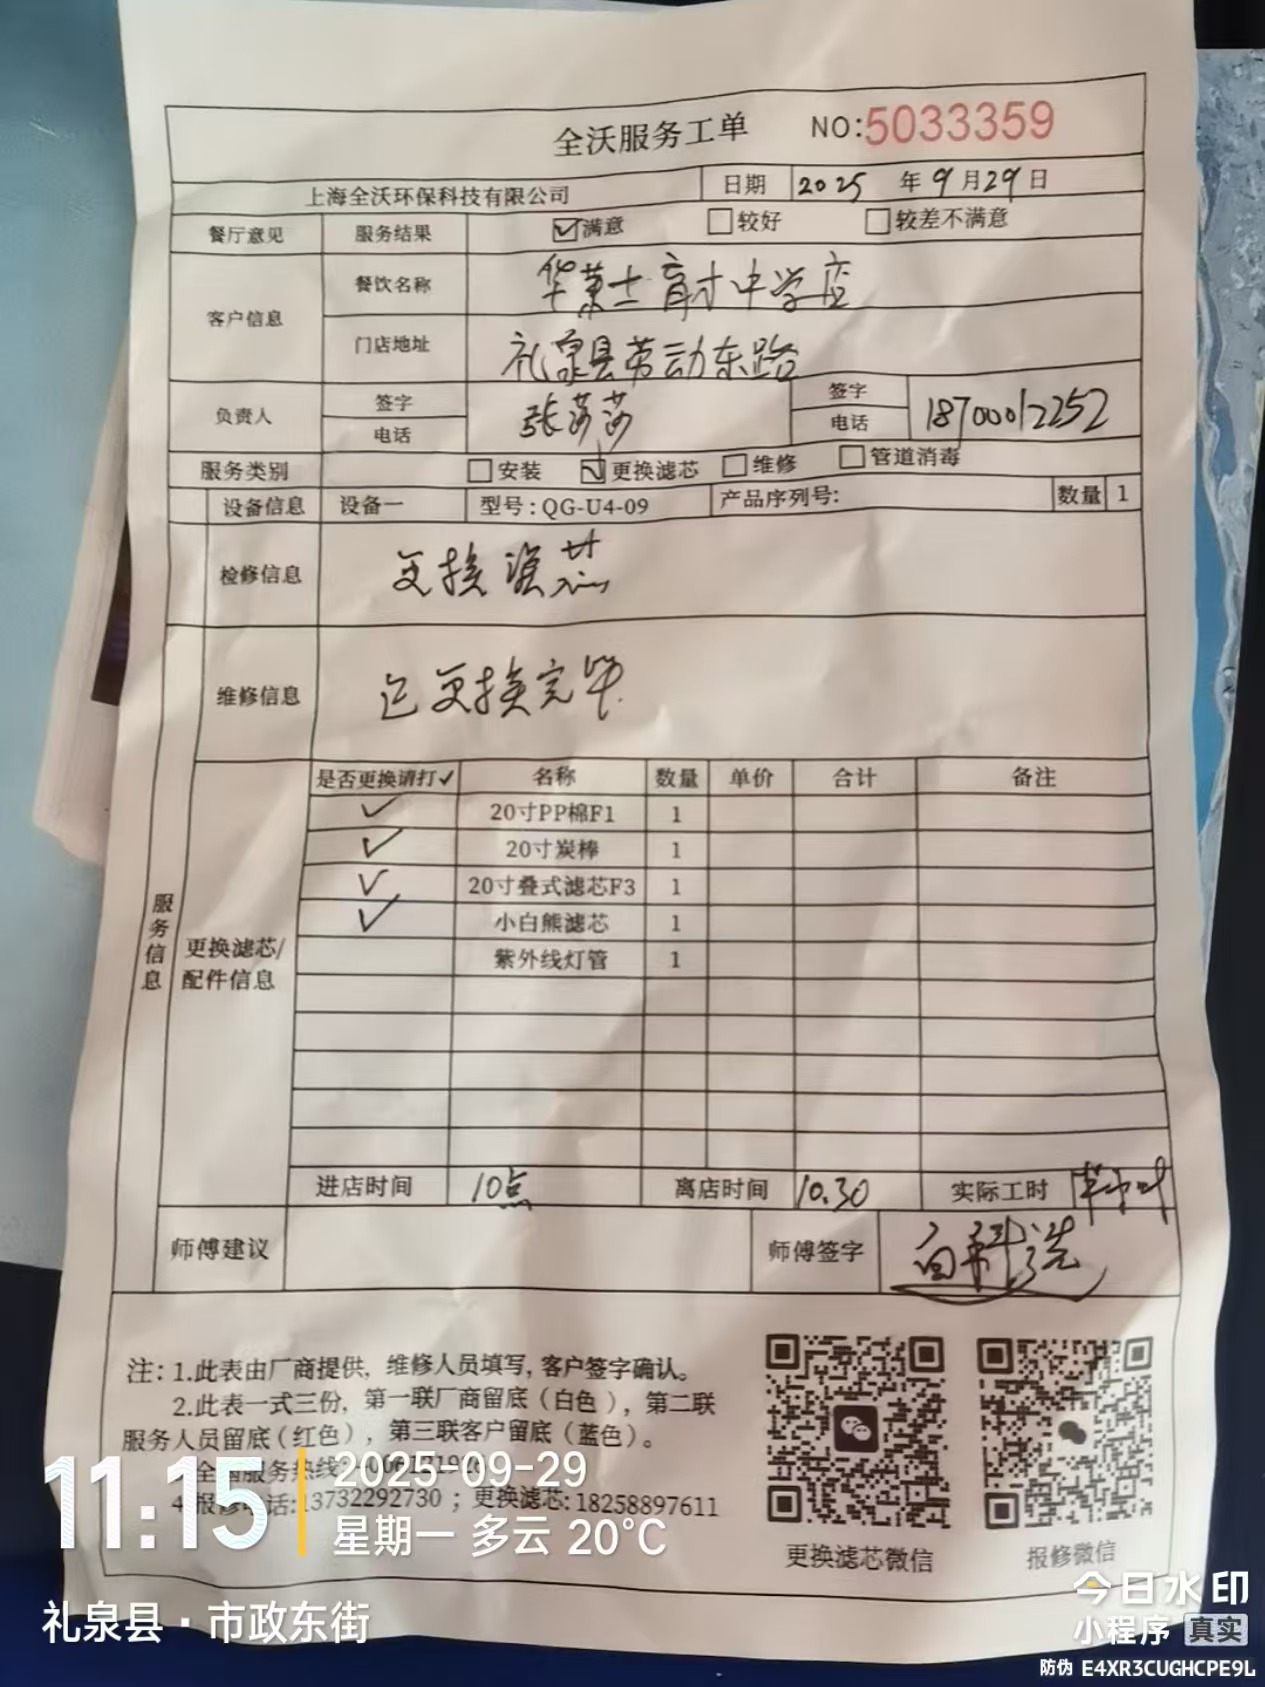 全沃服务工单 NO:5033359
上海全沃环保科技有限公司 日期 2025 年 9 月 29 日
餐厅意见 服务结果 ☑满意 □较好 □较差不满意
客户信息 餐饮名称 华莱士育才中学店
门店地址 礼泉县劳动东路
负责人 签字 电话 张莎莎 签字 电话 18700012252
服务类别 □安装 ☑更换滤芯 □维修 □管道消毒
设备信息 设备一 型号:QG-U4-09 产品序列号: 数量 1
检修信息 更换滤芯
维修信息 已更换完毕
服务信息
更换滤芯/配件信息
是否更换请打✓ 名称 数量 单价 合计 备注
✓ 20寸PP棉F1 1
✓ 20寸炭棒 1
✓ 20寸叠式滤芯F3 1
✓ 小白熊滤芯 1
紫外线灯管 1
进店时间 10点 离店时间 10.30 实际工时 半小时
师傅建议 师傅签字
注: 1.此表由厂商提供, 维修人员填写, 客户签字确认。
2.此表一式三份, 第一联厂商留底(白色), 第二联
服务人员留底(红色), 第三联客户留底(蓝色)。
全国服务热线:
4.报修电话:13732292730 ; 更换滤芯:18258897611
更换滤芯微信 报修微信
11:15 2025-09-29
星期一 多云 20°C
礼泉县·市政东街
今日水印
小程序 真实
防伪 E4XR3CUGHCPE9L